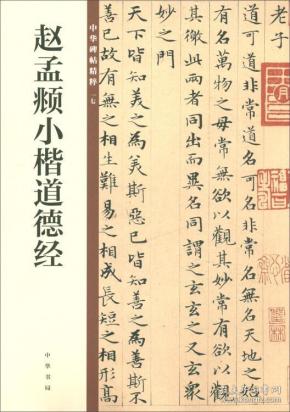 赵孟頫小楷道德经
中华书局
中华碑帖精粹 一七
老子
道可道非常道名可名非常名無名天地之始
有名萬物之母常無欲以觀其妙常有欲以觀
其徼此兩者同出而異名同謂之玄玄之又玄衆
妙之門
天下皆知美之為美斯惡已皆知善之為善斯不
善已故有無之相生難易之相成長短之相形高